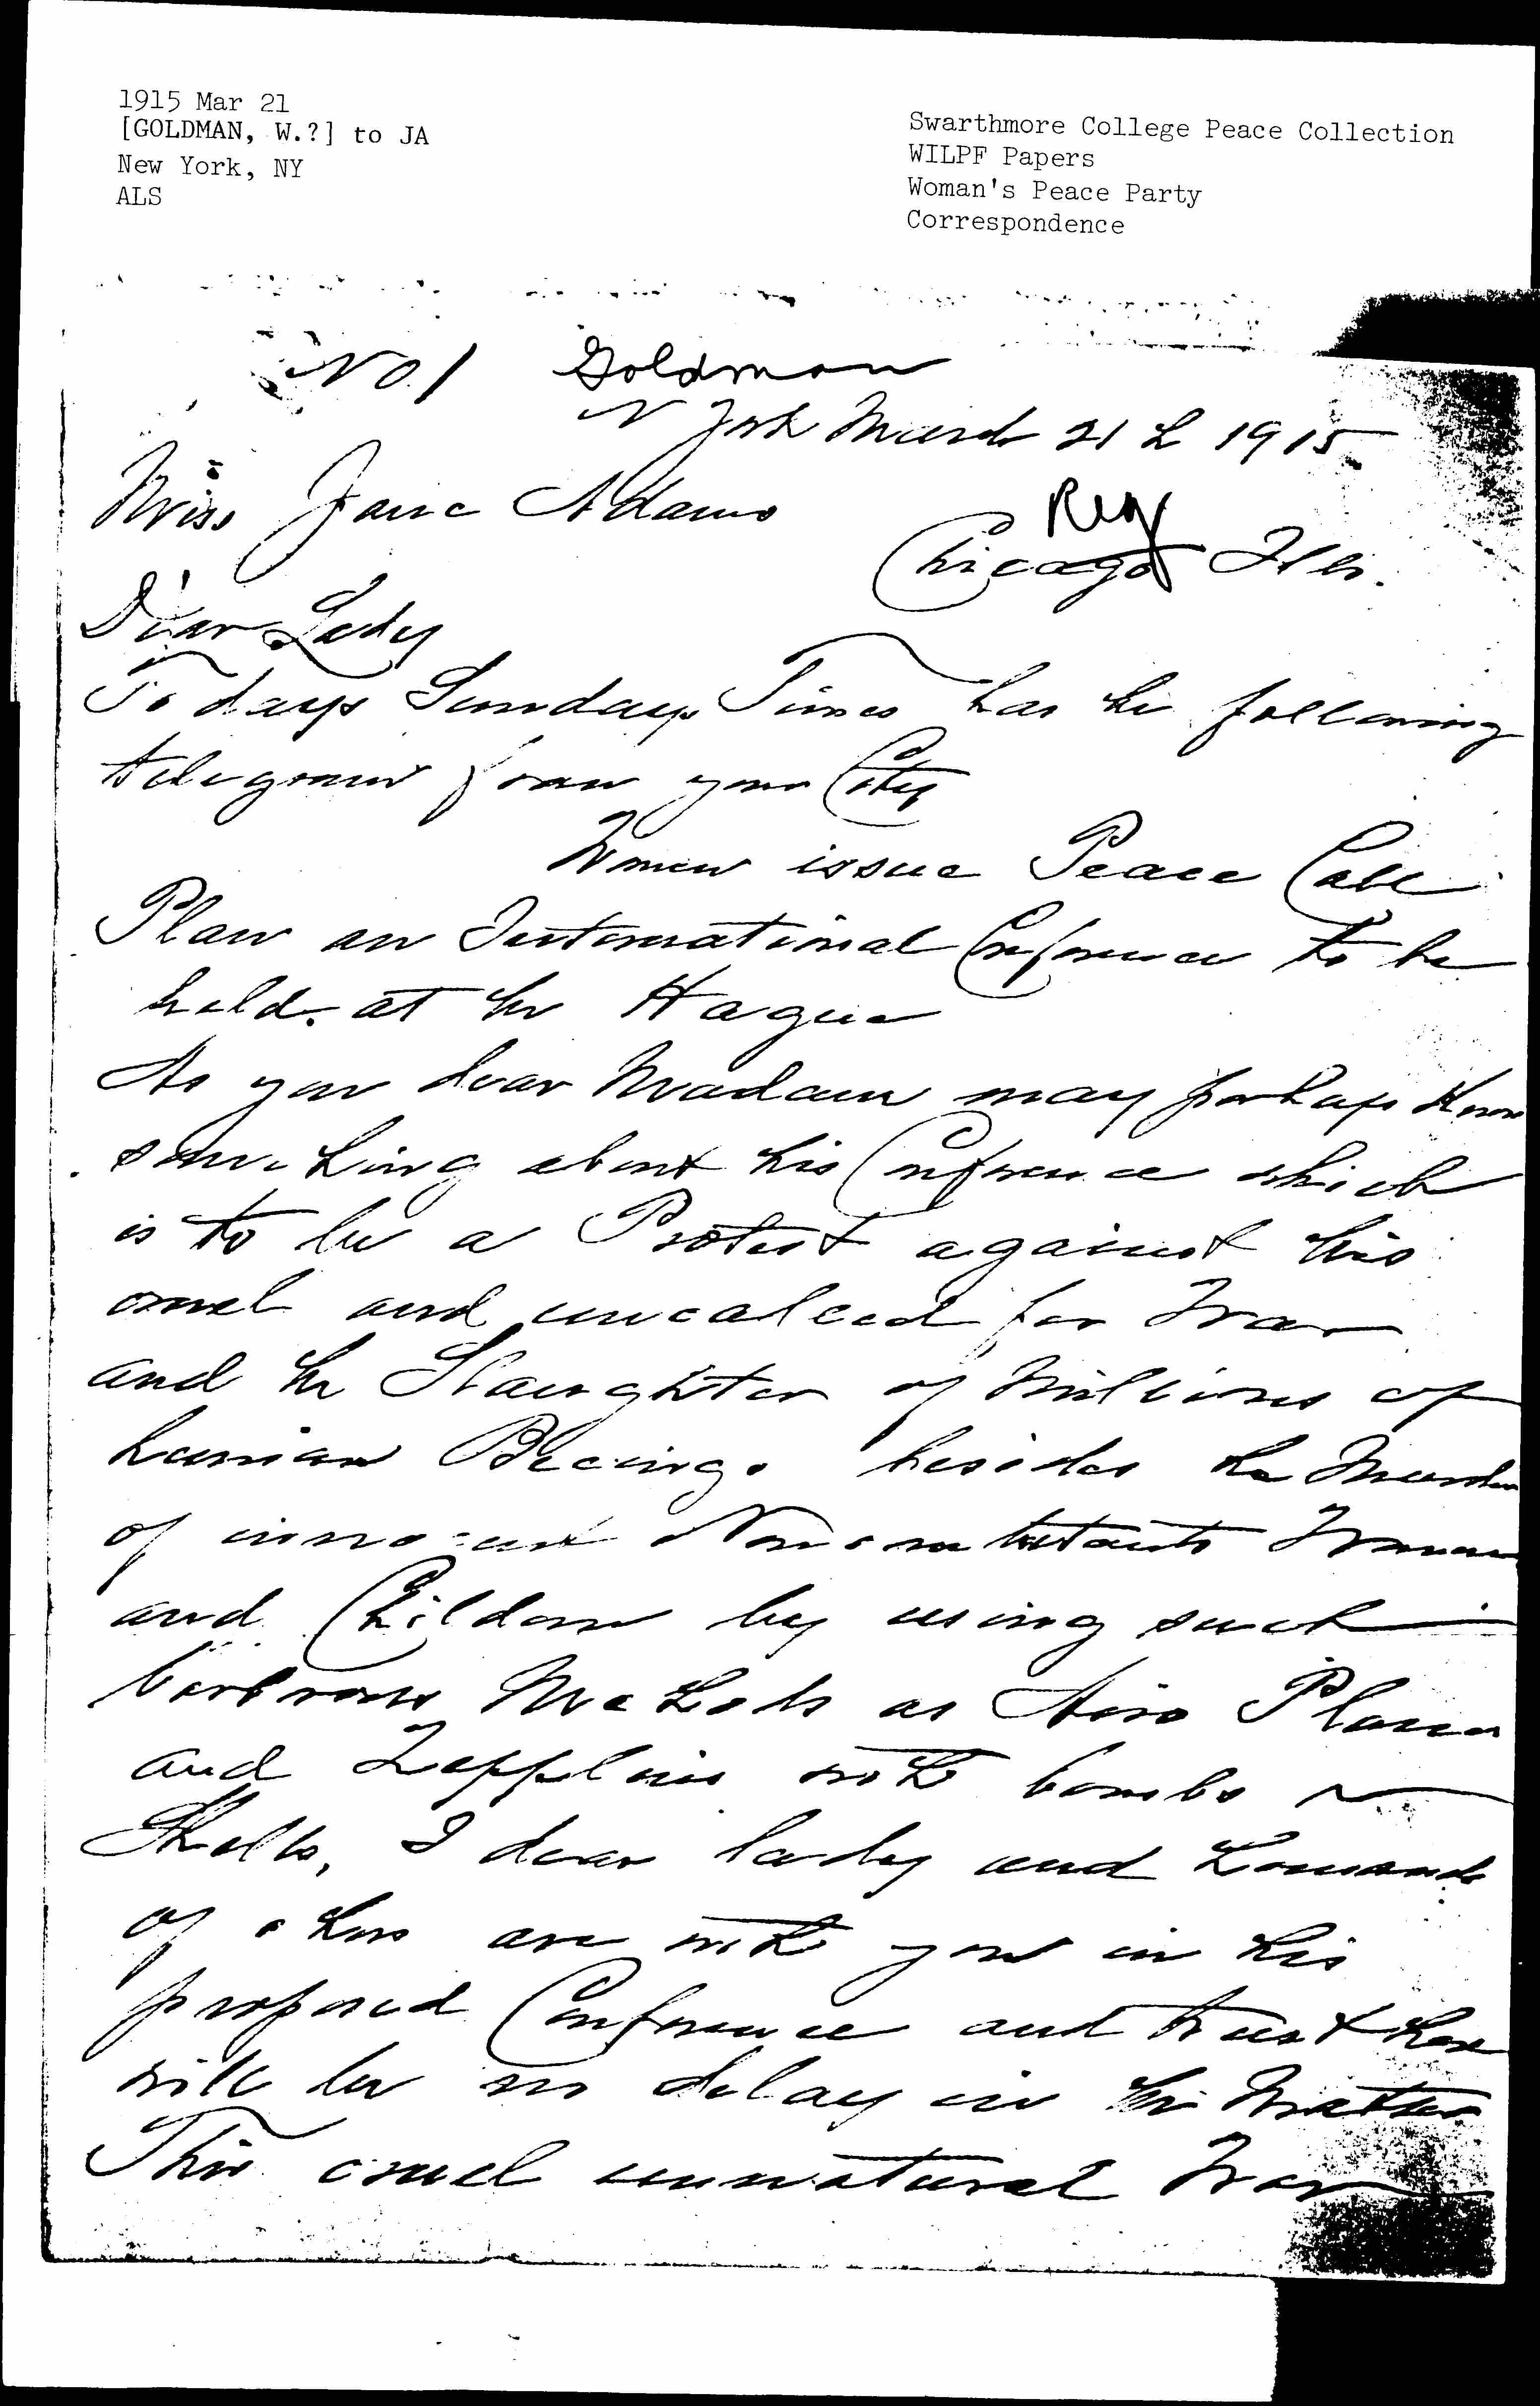 1915 Mar 21
[GOLDMAN, W.?] to JA
New York, NY
ALS
Swarthmore College Peace Collection
WILPF Papers
Woman's Peace Party
Correspondence
No 1 Goldman
N York March 21 1915
Miss Jane Adams
Reg
Chicago Ills.
Dear Lady
To days Sundays Times has the following
telegram from your City
Women issue Peace Call
Plan an International Conference to be
held at the Hague
As you dear Madam may perhaps know
something about this Conference which
is to be a Protest against this
cruel and uncalled for War
and the Slaughter of Millions of
human Beeings besides the Murder
of innocent Women
and Children by using such
barbrous Methods as Airo Planes
and Zepplins with bombs
Shells, I dear lady and thousands
of others are with you in this
proposed Conference and trust there
will be no delay in the Matter
This cruel unnatural War